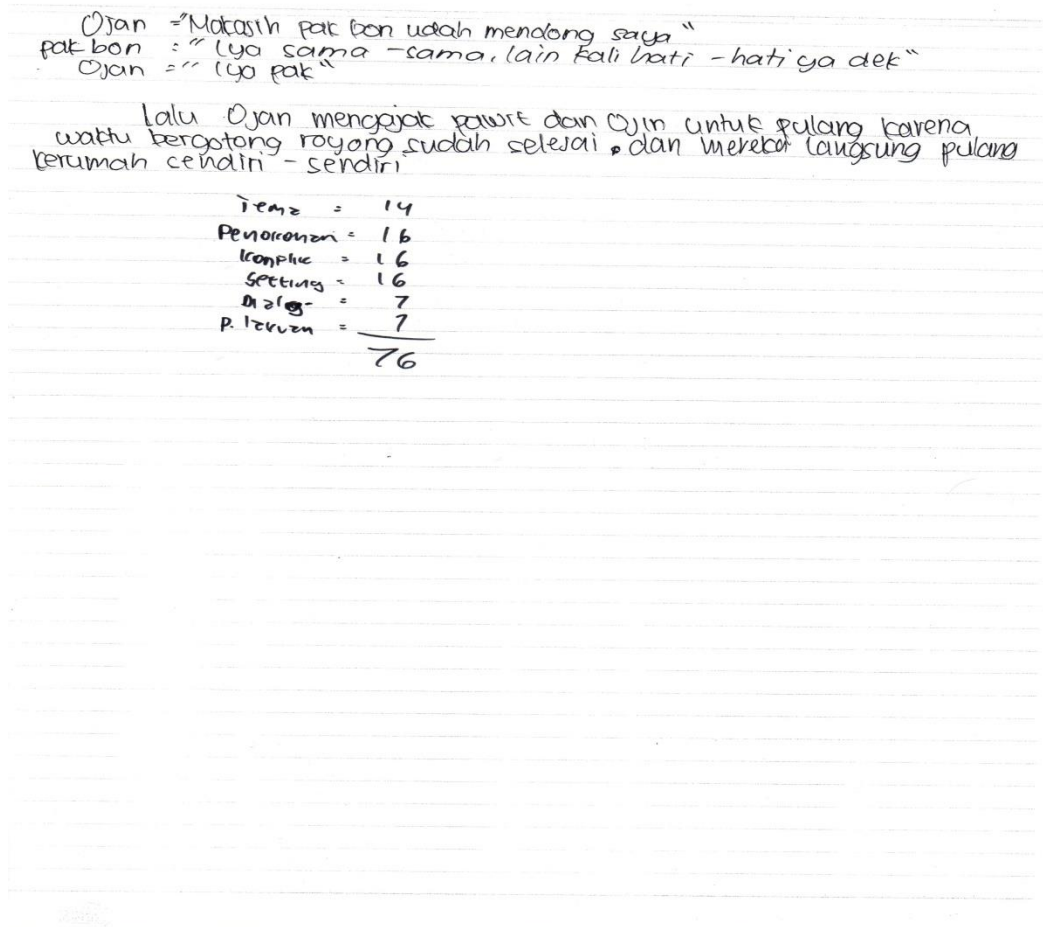 Ojan = "Makasih pak bon udah mendong saya"
pak bon : "iya sama - sama, lain kali hati - hati ya dek"
Ojan = " iya pak"
Lalu Ojan mengajak pawit dan Ojin untuk pulang karena
waktu bergotong royong sudah selesai. dan mereka langsung pulang
kerumah cendiri - sendiri
Tema = 14
Penokohan = 16
Konflik = 16
Setting = 16
Dialog = 7
P. lakuan = 7
76